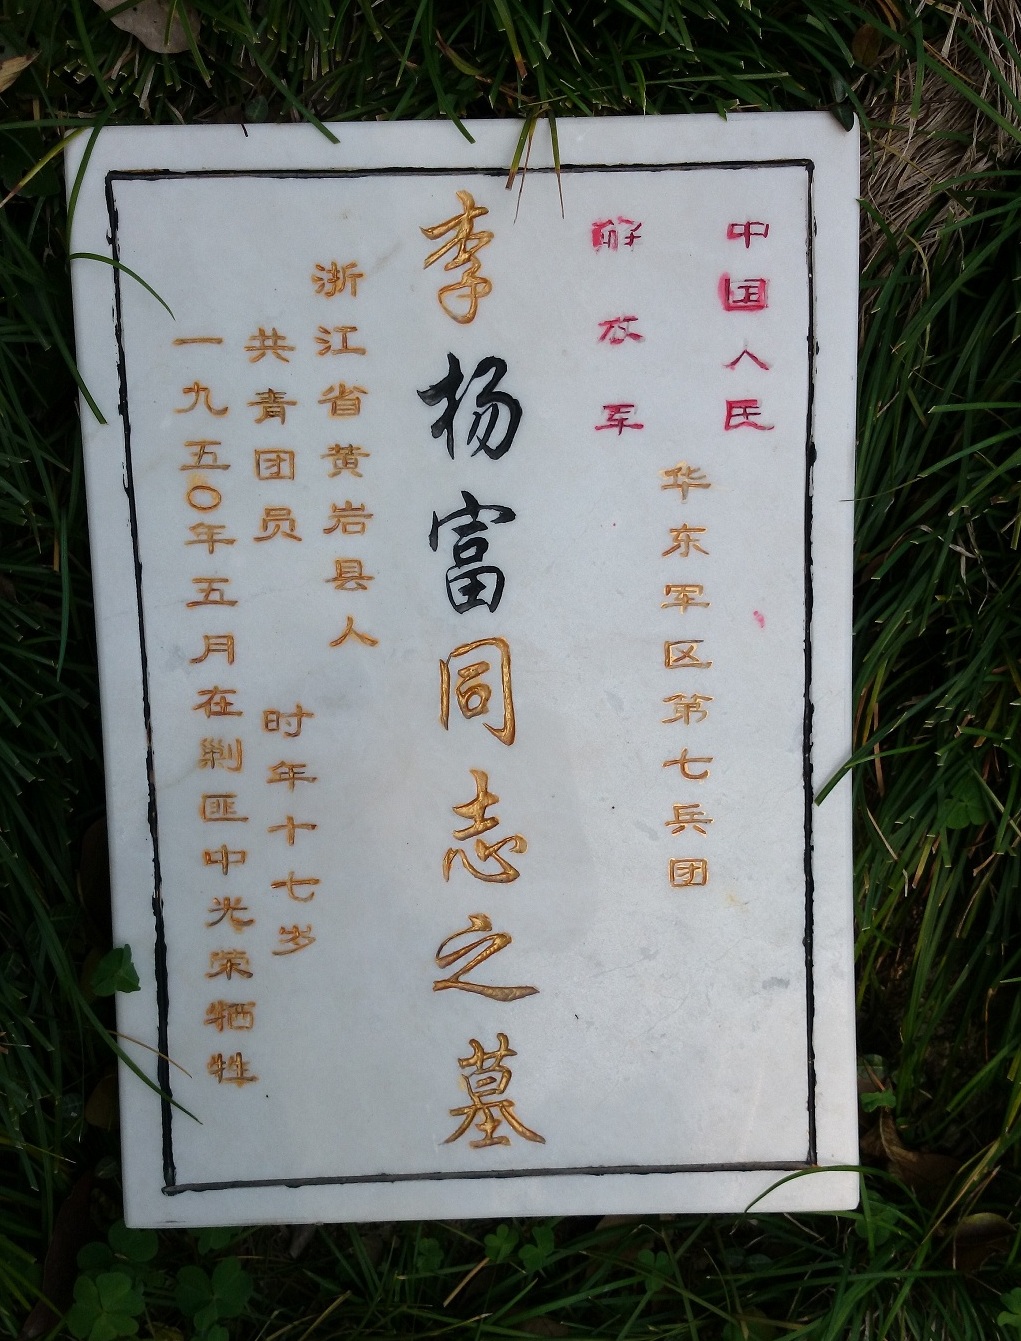 中国人民
解放军
华东军区第七兵团
李杨富同志之墓
浙江省黄岩县人
共青团员 时年十七岁
一九五〇年五月在剿匪中光荣牺牲